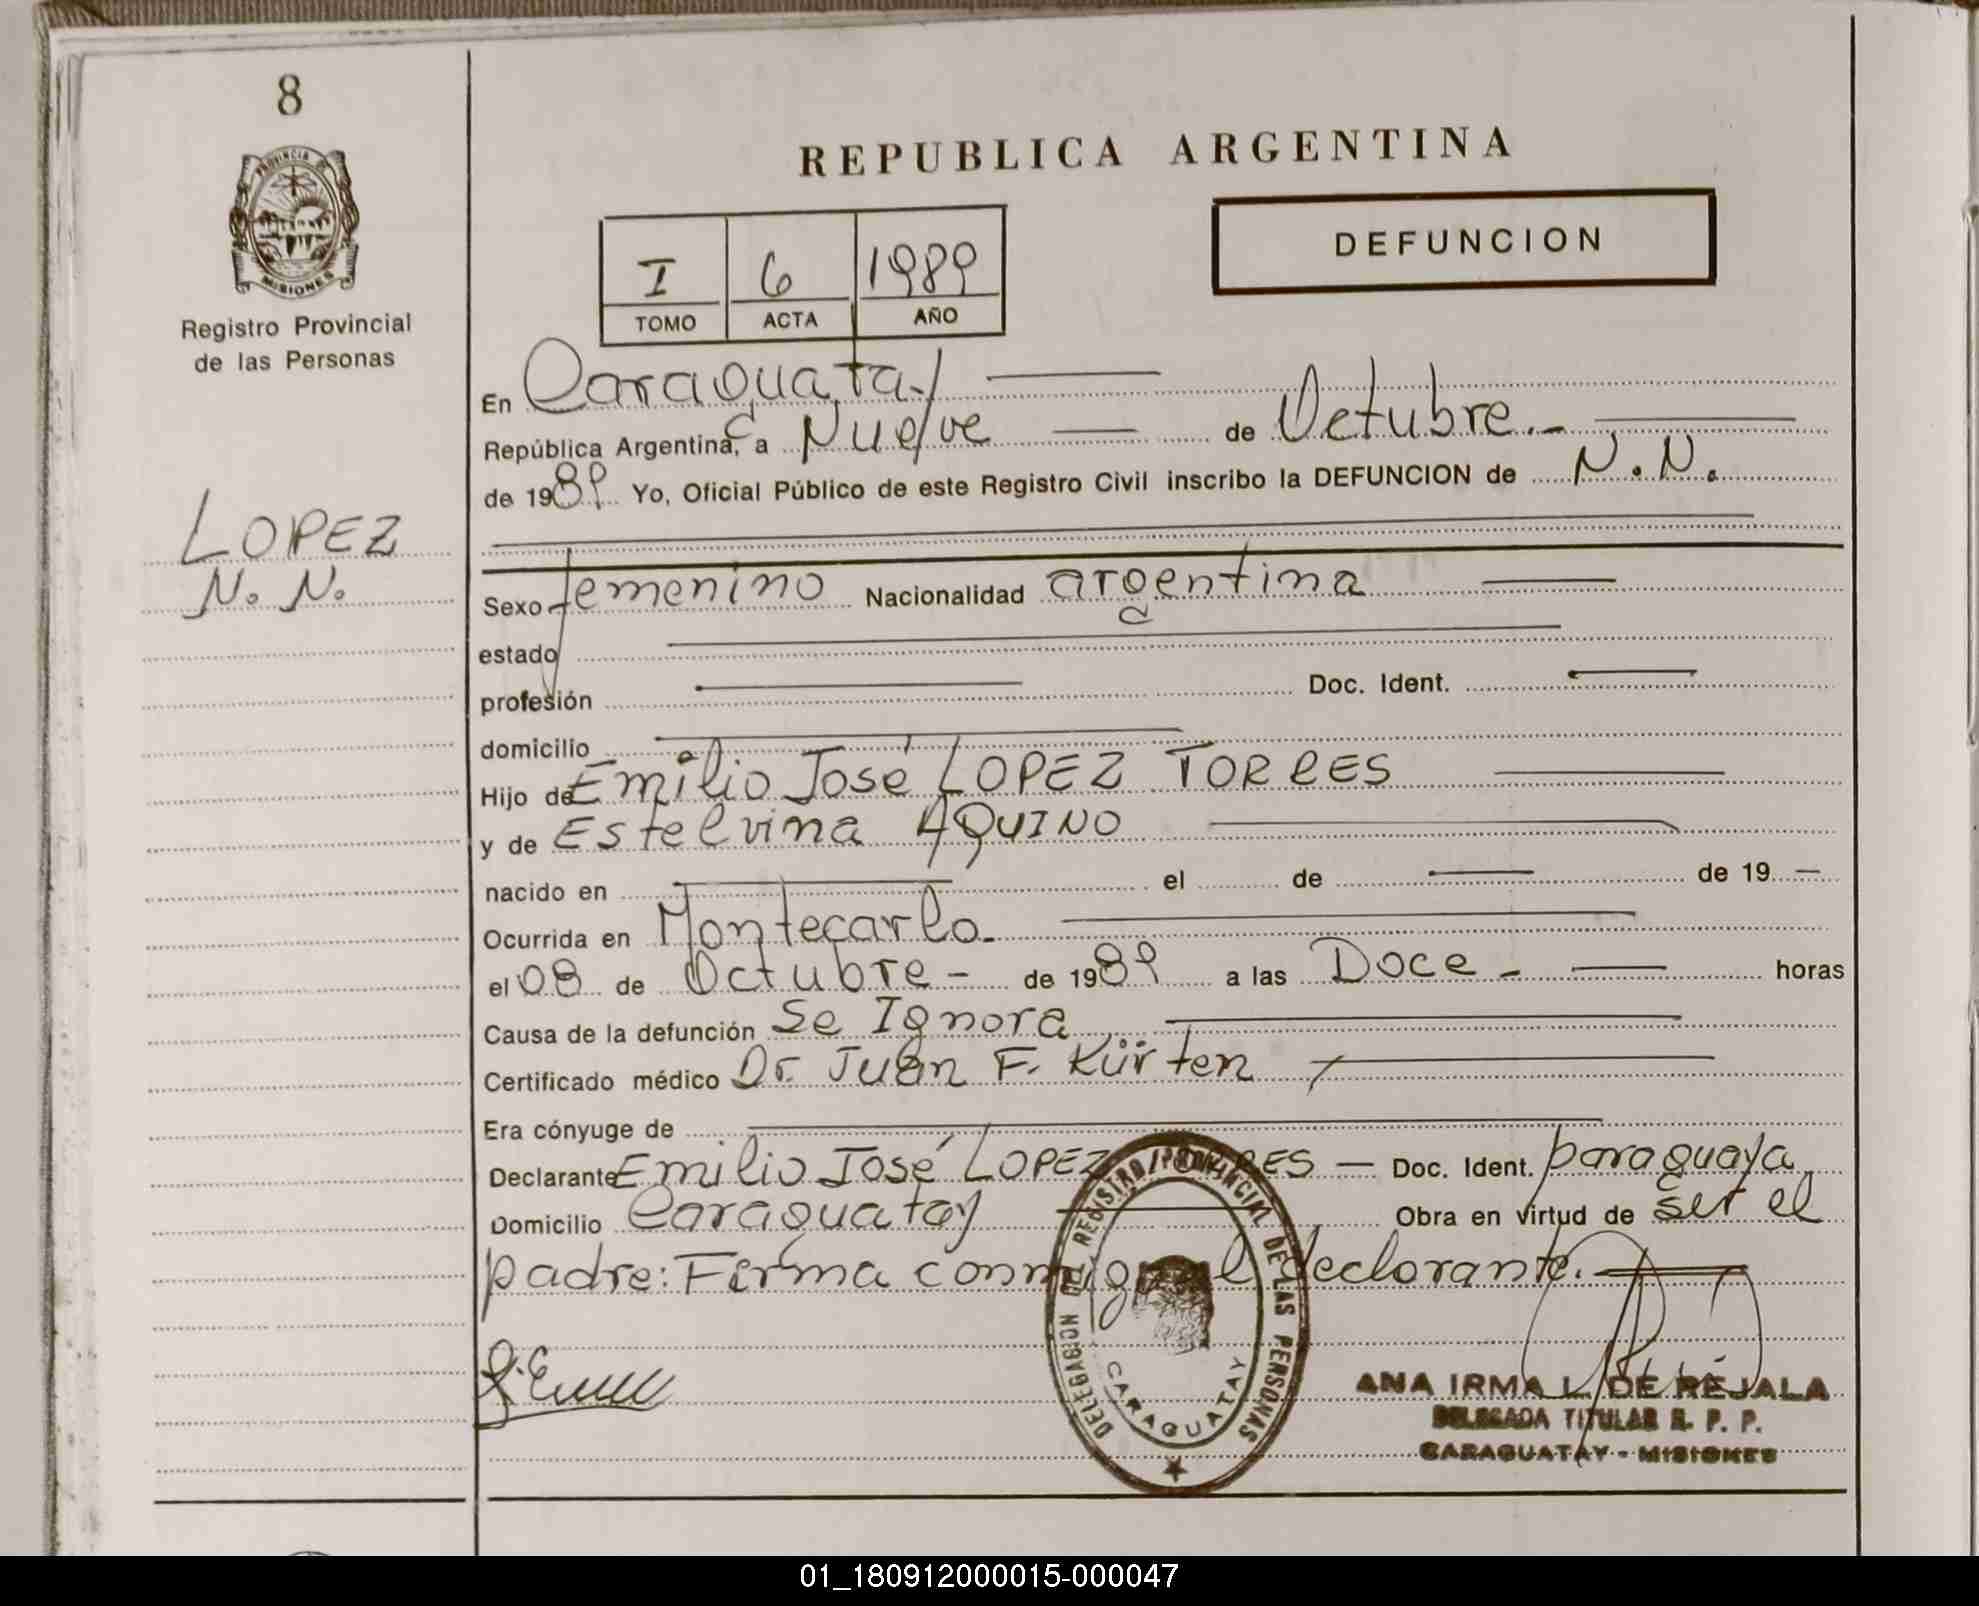 8
PROVINCIA DE
MISIONES
Registro Provincial
de las Personas
LOPEZ
N. N.
REPUBLICA ARGENTINA
DEFUNCION
I 6 1989
TOMO ACTA AÑO
En Caraguatay
República Argentina, a Nueve de Octubre.-
de 1989 Yo, Oficial Público de este Registro Civil inscribo la DEFUNCION de N.N.
Sexo femenino Nacionalidad argentina
estado
profesión Doc. Ident.
domicilio
Hijo de Emilio José LOPEZ TORRES
y de Estelvina AQUINO
nacido en el de de 19 —
Ocurrida en Montecarlo.
el 08 de Octubre - de 1989 a las Doce - horas
Causa de la defunción Se Ignora
Certificado médico Dr. Juan F. Kürten
Era cónyuge de
Declarante Emilio José LOPEZ TORRES — Doc. Ident. paraguaya
Domicilio Caraguatay Obra en virtud de ser el
padre: Firma conmigo el declarante.
DELEGACION DEL REGISTRO PROVINCIAL DE LAS PERSONAS
CARAGUATAY
ANA IRMA L. DE REJALA
DELEGADA TITULAR R. P. P.
CARAGUATAY - MISIONES
01_180912000015-000047